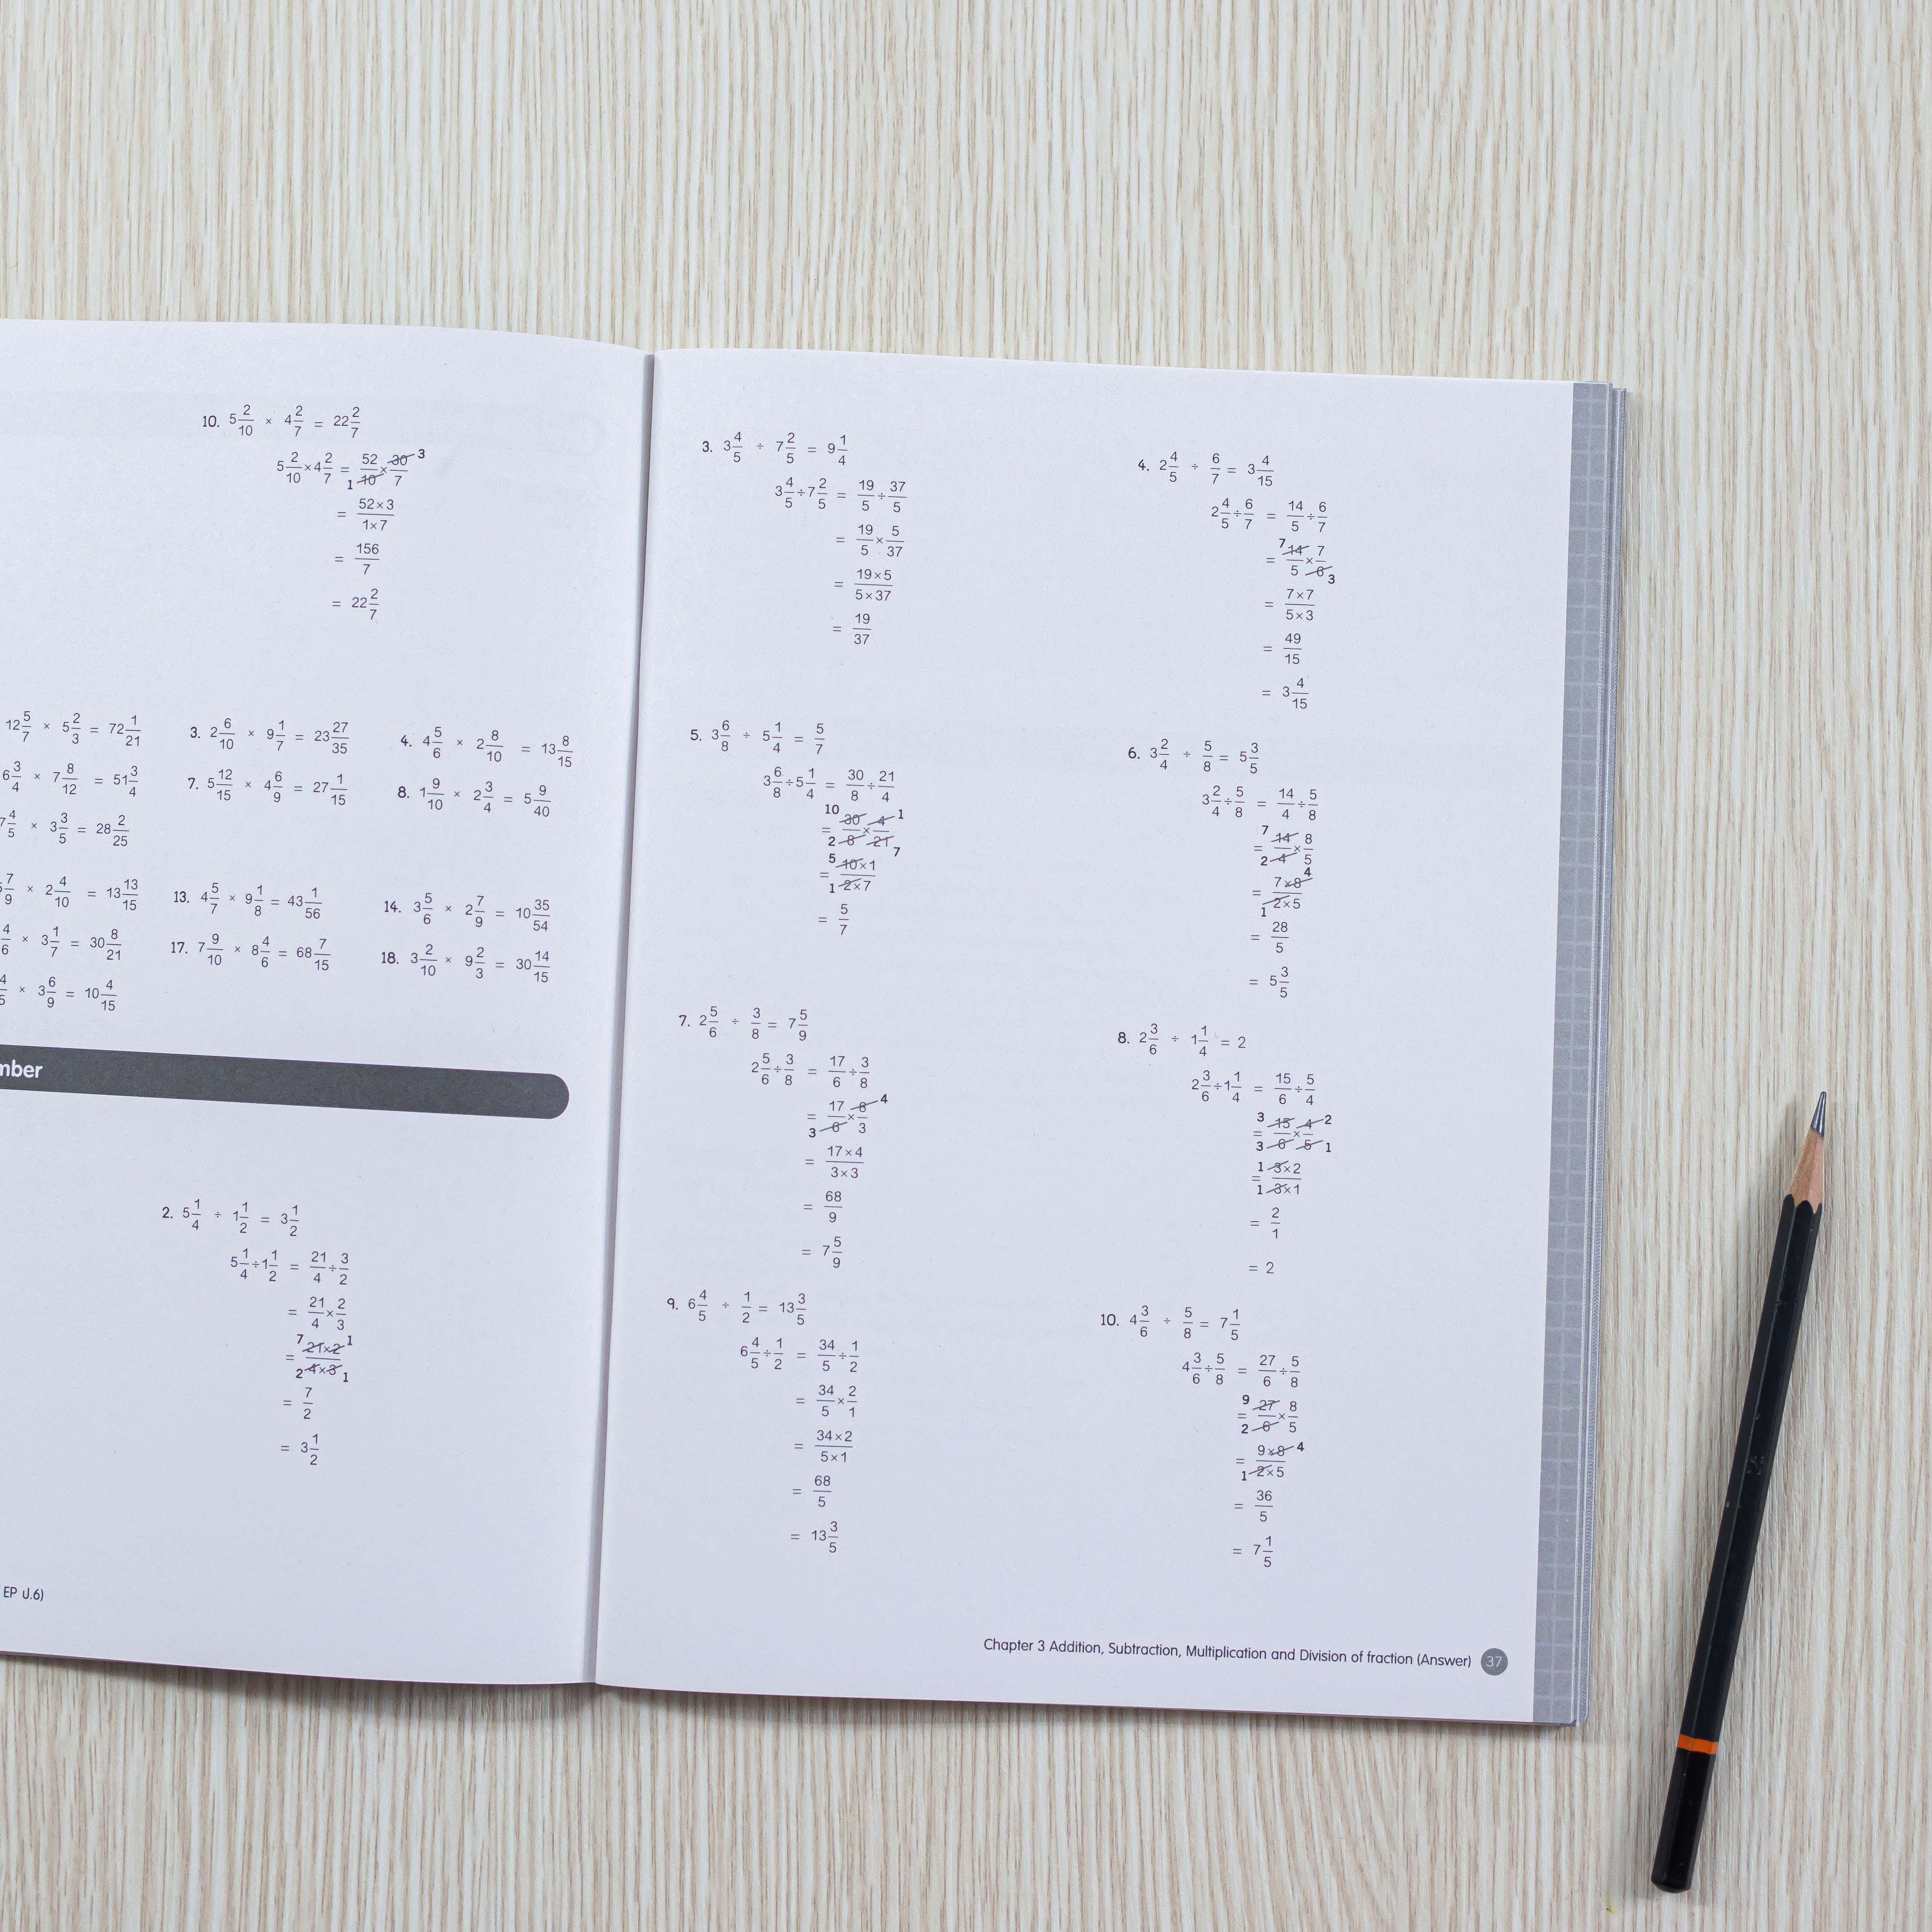 10. 5 2/10 × 4 2/7 = 22 2/7
5 2/10 × 4 2/7 = 52/10 × 30/7 1 3
= 52×3/1×7
= 156/7
= 22 2/7
12 5/7 × 5 2/3 = 72 1/21
3. 2 6/10 × 9 1/7 = 23 27/35
4. 4 5/6 × 2 8/10 = 13 8/15
6 3/4 × 7 8/12 = 51 3/4
7. 5 12/15 × 4 6/9 = 27 1/15
8. 1 9/10 × 2 3/4 = 5 9/40
7 4/5 × 3 3/5 = 28 2/25
7/9 × 2 4/10 = 13 13/15
13. 4 5/7 × 9 1/8 = 43 1/56
14. 3 5/6 × 2 7/9 = 10 35/54
4/6 × 3 1/7 = 30 8/21
17. 7 9/10 × 8 4/6 = 68 7/15
18. 3 2/10 × 9 2/3 = 30 14/15
4/5 × 3 6/9 = 10 4/15
mber
2. 5 1/4 ÷ 1 1/2 = 3 1/2
5 1/4 ÷ 1 1/2 = 21/4 ÷ 3/2
= 21/4 × 2/3
= 21×2/4×3 7 1 2 1
= 7/2
= 3 1/2
EP U.6)
3. 3 4/5 ÷ 7 2/5 = 9 1/4
3 4/5 ÷ 7 2/5 = 19/5 ÷ 37/5
= 19/5 × 5/37
= 19×5/5×37
= 19/37
4. 2 4/5 ÷ 6/7 = 3 4/15
2 4/5 ÷ 6/7 = 14/5 ÷ 6/7
= 14/5 × 7/6 7 3
= 7×7/5×3
= 49/15
= 3 4/15
5. 3 6/8 ÷ 5 1/4 = 5/7
3 6/8 ÷ 5 1/4 = 30/8 ÷ 21/4
= 30/8 × 4/21 10 1 2 7
= 10×1/2×7 5 1
= 5/7
6. 3 2/4 ÷ 5/8 = 5 3/5
3 2/4 ÷ 5/8 = 14/4 ÷ 5/8
= 14/4 × 8/5 7 2
= 7×8/2×5 4 1
= 28/5
= 5 3/5
7. 2 5/6 ÷ 3/8 = 7 5/9
2 5/6 ÷ 3/8 = 17/6 ÷ 3/8
= 17/6 × 8/3 4 3
= 17×4/3×3
= 68/9
= 7 5/9
8. 2 3/6 ÷ 1 1/4 = 2
2 3/6 ÷ 1 1/4 = 15/6 ÷ 5/4
= 15/6 × 4/5 3 2 3 1
= 3×2/3×1 1 1
= 2/1
= 2
9. 6 4/5 ÷ 1/2 = 13 3/5
6 4/5 ÷ 1/2 = 34/5 ÷ 1/2
= 34/5 × 2/1
= 34×2/5×1
= 68/5
= 13 3/5
10. 4 3/6 ÷ 5/8 = 7 1/5
4 3/6 ÷ 5/8 = 27/6 ÷ 5/8
= 27/6 × 8/5 9 2
= 9×8/2×5 4 1
= 36/5
= 7 1/5
Chapter 3 Addition, Subtraction, Multiplication and Division of fraction (Answer) 37